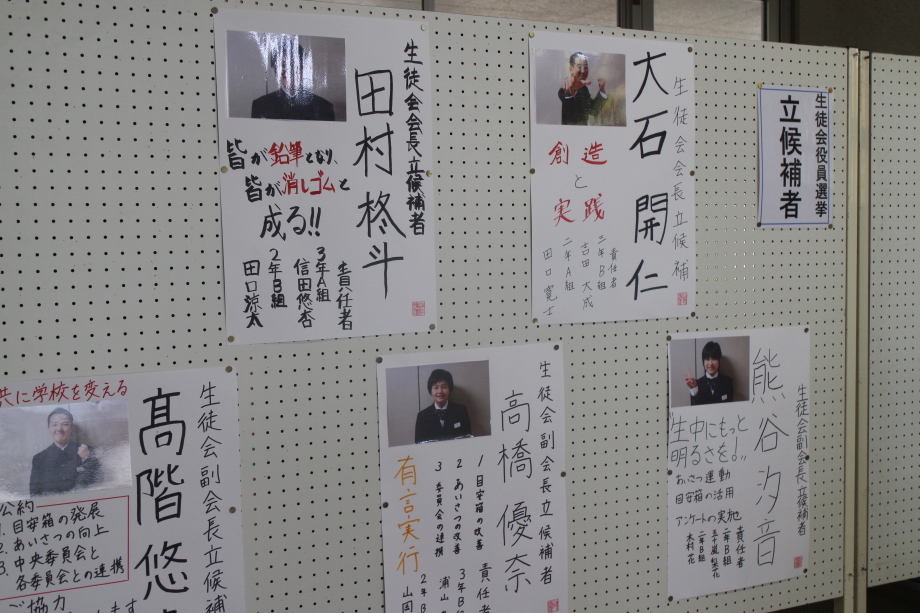 生徒会役員選挙
立候補者
生徒会会長立候補
大石 開仁
創造
と
実践
責任者
三年B組
吉田 大成
二年A組
田口 寛士
生徒会会長立候補者
田村 柊斗
皆が鉛筆となり、
皆が消しゴムと
成る!!
責任者
3年A組
信田悠杏
2年B組
田口涼太
生徒会副会長立候補者
熊谷汐音
"生中にもっと
明るさを。"
あいさつ運動
目安箱の活用
アンケートの実施
責任者
三年B組
五十嵐梨花
二年B組
木村 花
生徒会副会長立候補者
高橋優奈
有言実行
1 目安箱の改善
2 あいさつの改善
3 委員会の連携
責任者
3年B組
浦山
2年B
山岡
生徒会副会長立候補
髙階 悠
共に学校を変える
公約
1. 目安箱の発展
2. あいさつの向上
3. 中央委員会と
各委員会との連携
ご協力
ます